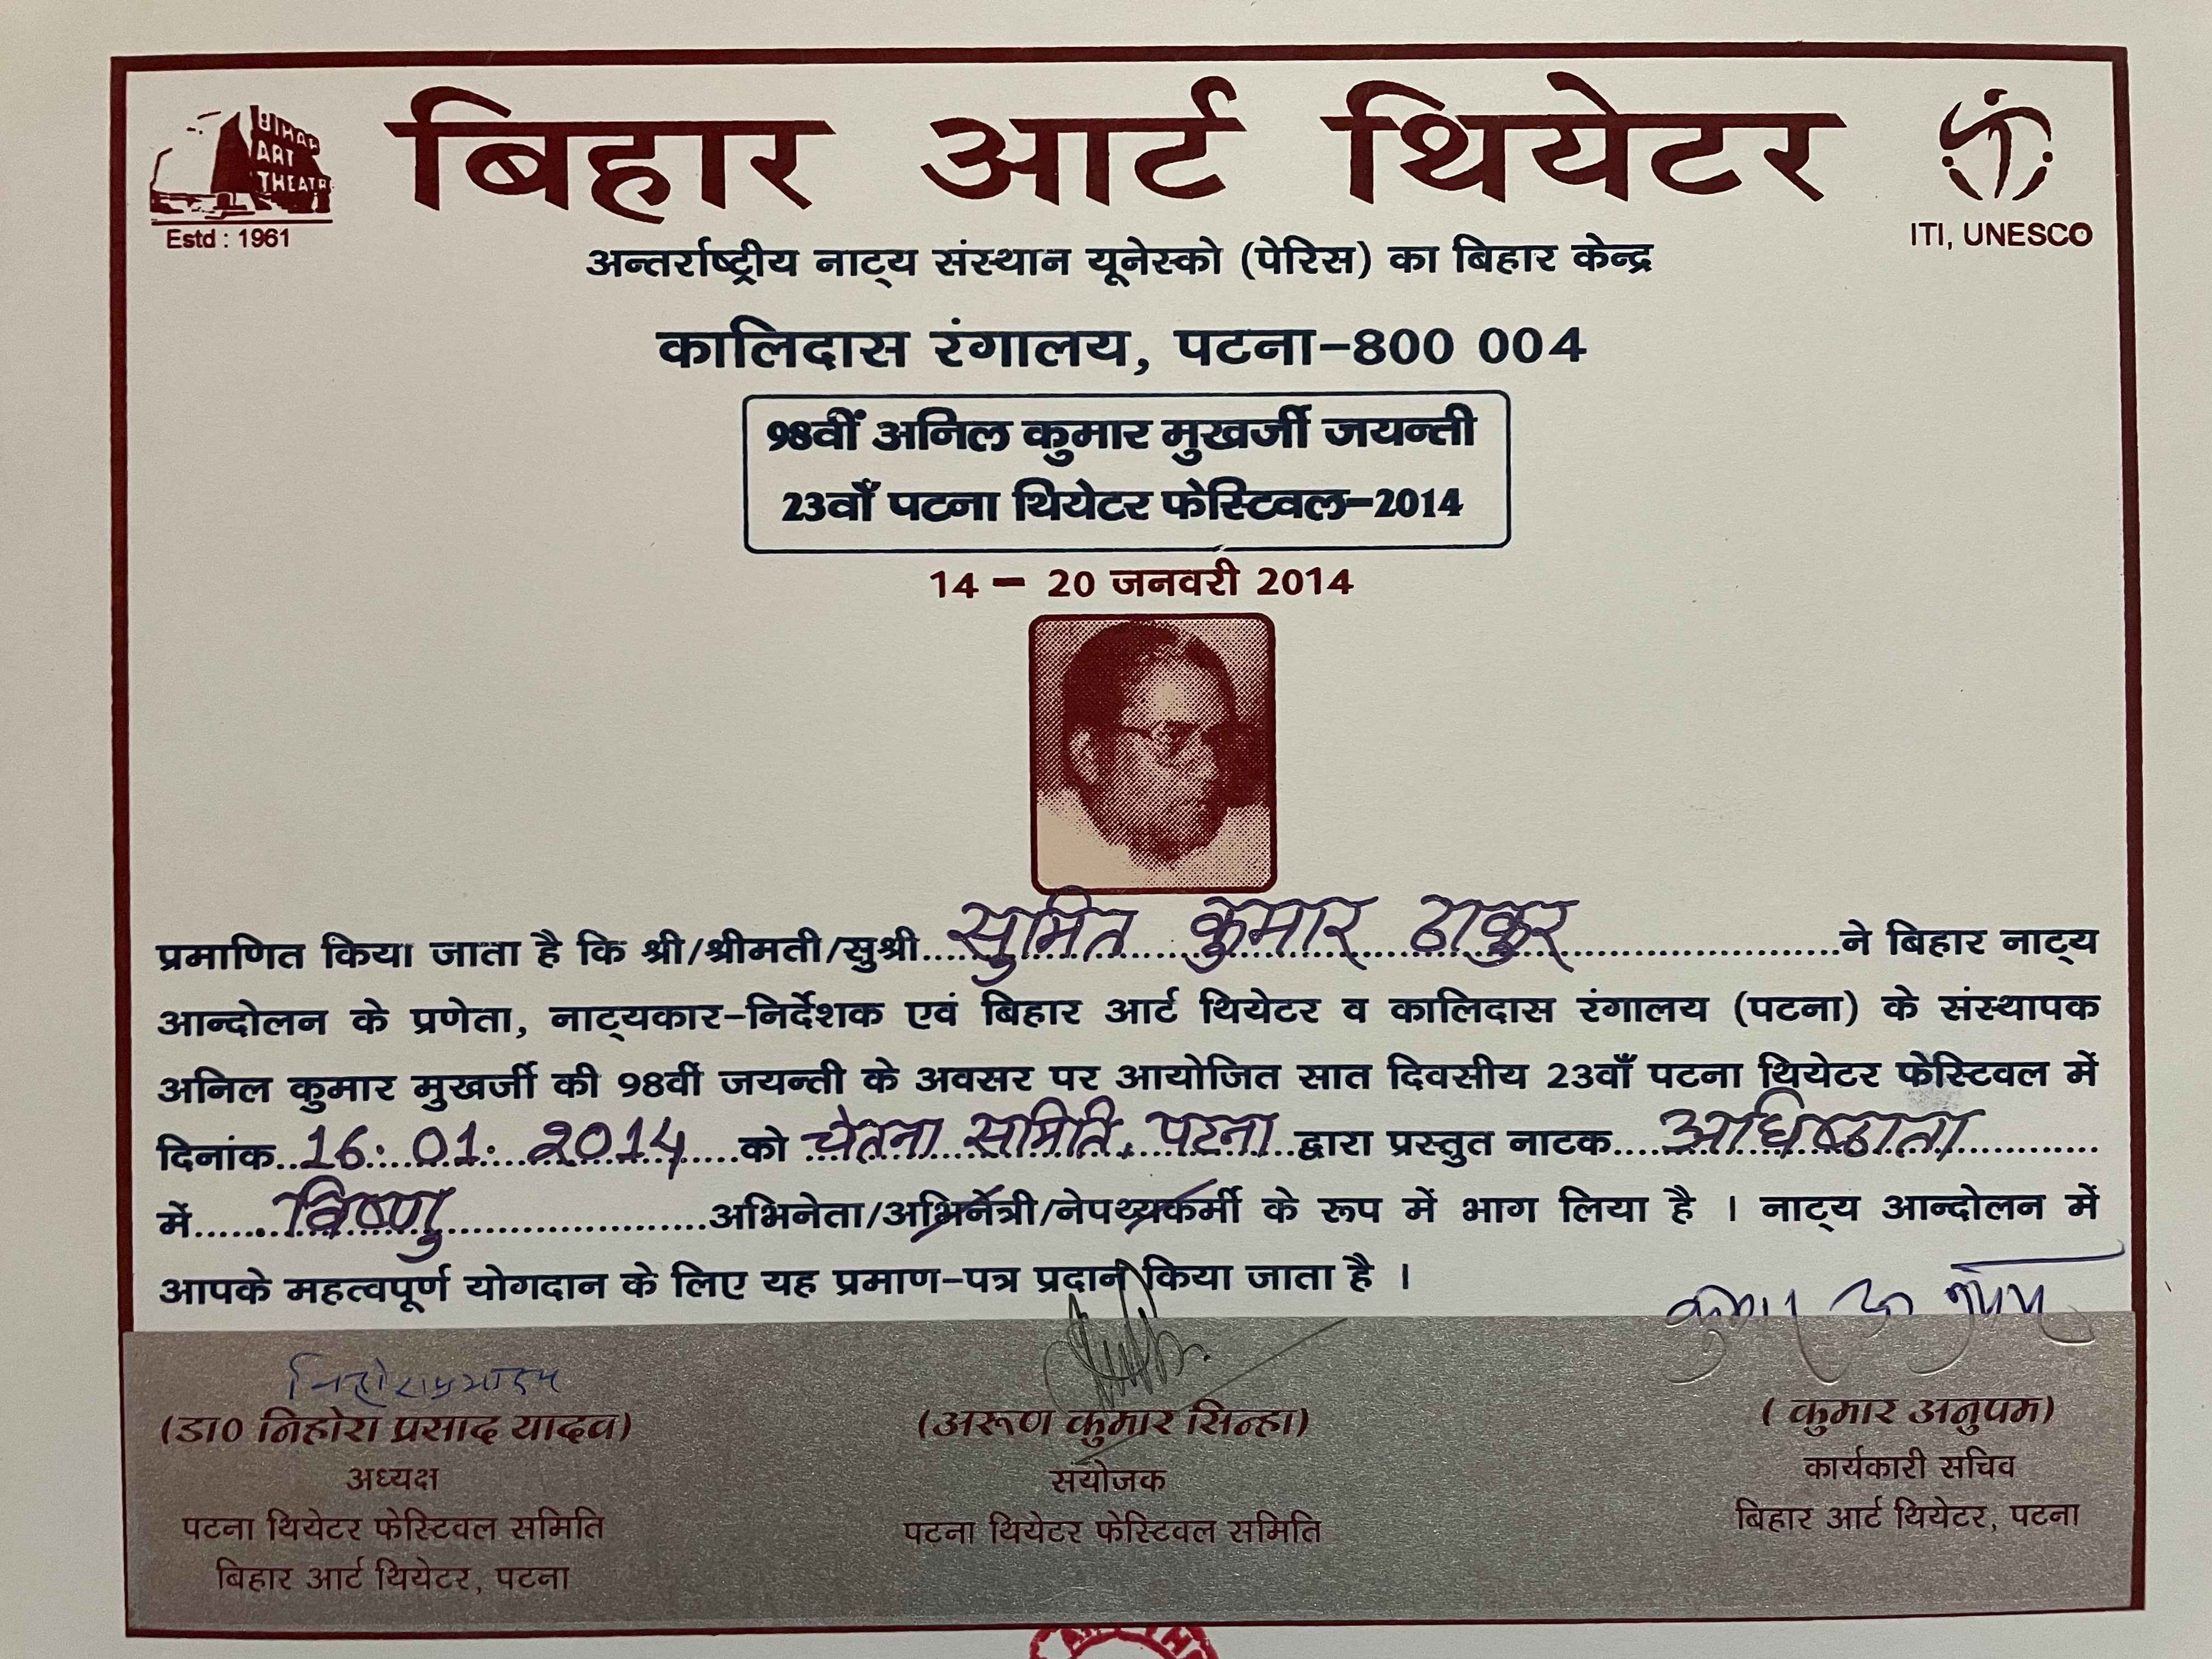 BIHAR
ART
THEATR
Estd : 1961
बिहार आर्ट थियेटर
ITI, UNESCO
अन्तर्राष्ट्रीय नाट्य संस्थान यूनेस्को (पेरिस) का बिहार केन्द्र
कालिदास रंगालय, पटना-800 004
98वीं अनिल कुमार मुखर्जी जयन्ती
23वाँ पटना थियेटर फेस्टिवल-2014
14 - 20 जनवरी 2014
प्रमाणित किया जाता है कि श्री/श्रीमती/सुश्री सुमित कुमार ठाकुर ने बिहार नाट्य
आन्दोलन के प्रणेता, नाट्यकार-निर्देशक एवं बिहार आर्ट थियेटर व कालिदास रंगालय (पटना) के संस्थापक
अनिल कुमार मुखर्जी की 98वीं जयन्ती के अवसर पर आयोजित सात दिवसीय 23वाँ पटना थियेटर फेस्टिवल में
दिनांक 16. 01. 2014 को चेतना समिति, पटना द्वारा प्रस्तुत नाटक अधिष्ठाता
में विष्णु अभिनेता/अभिनेत्री/नेपथ्यकर्मी के रूप में भाग लिया है । नाट्य आन्दोलन में
आपके महत्वपूर्ण योगदान के लिए यह प्रमाण-पत्र प्रदान किया जाता है ।
कुमार अनुपम
(डा0 निहोरा प्रसाद यादव)
अध्यक्ष
पटना थियेटर फेस्टिवल समिति
बिहार आर्ट थियेटर, पटना
(अरूण कुमार सिन्हा)
संयोजक
पटना थियेटर फेस्टिवल समिति
( कुमार अनुपम)
कार्यकारी सचिव
बिहार आर्ट थियेटर, पटना